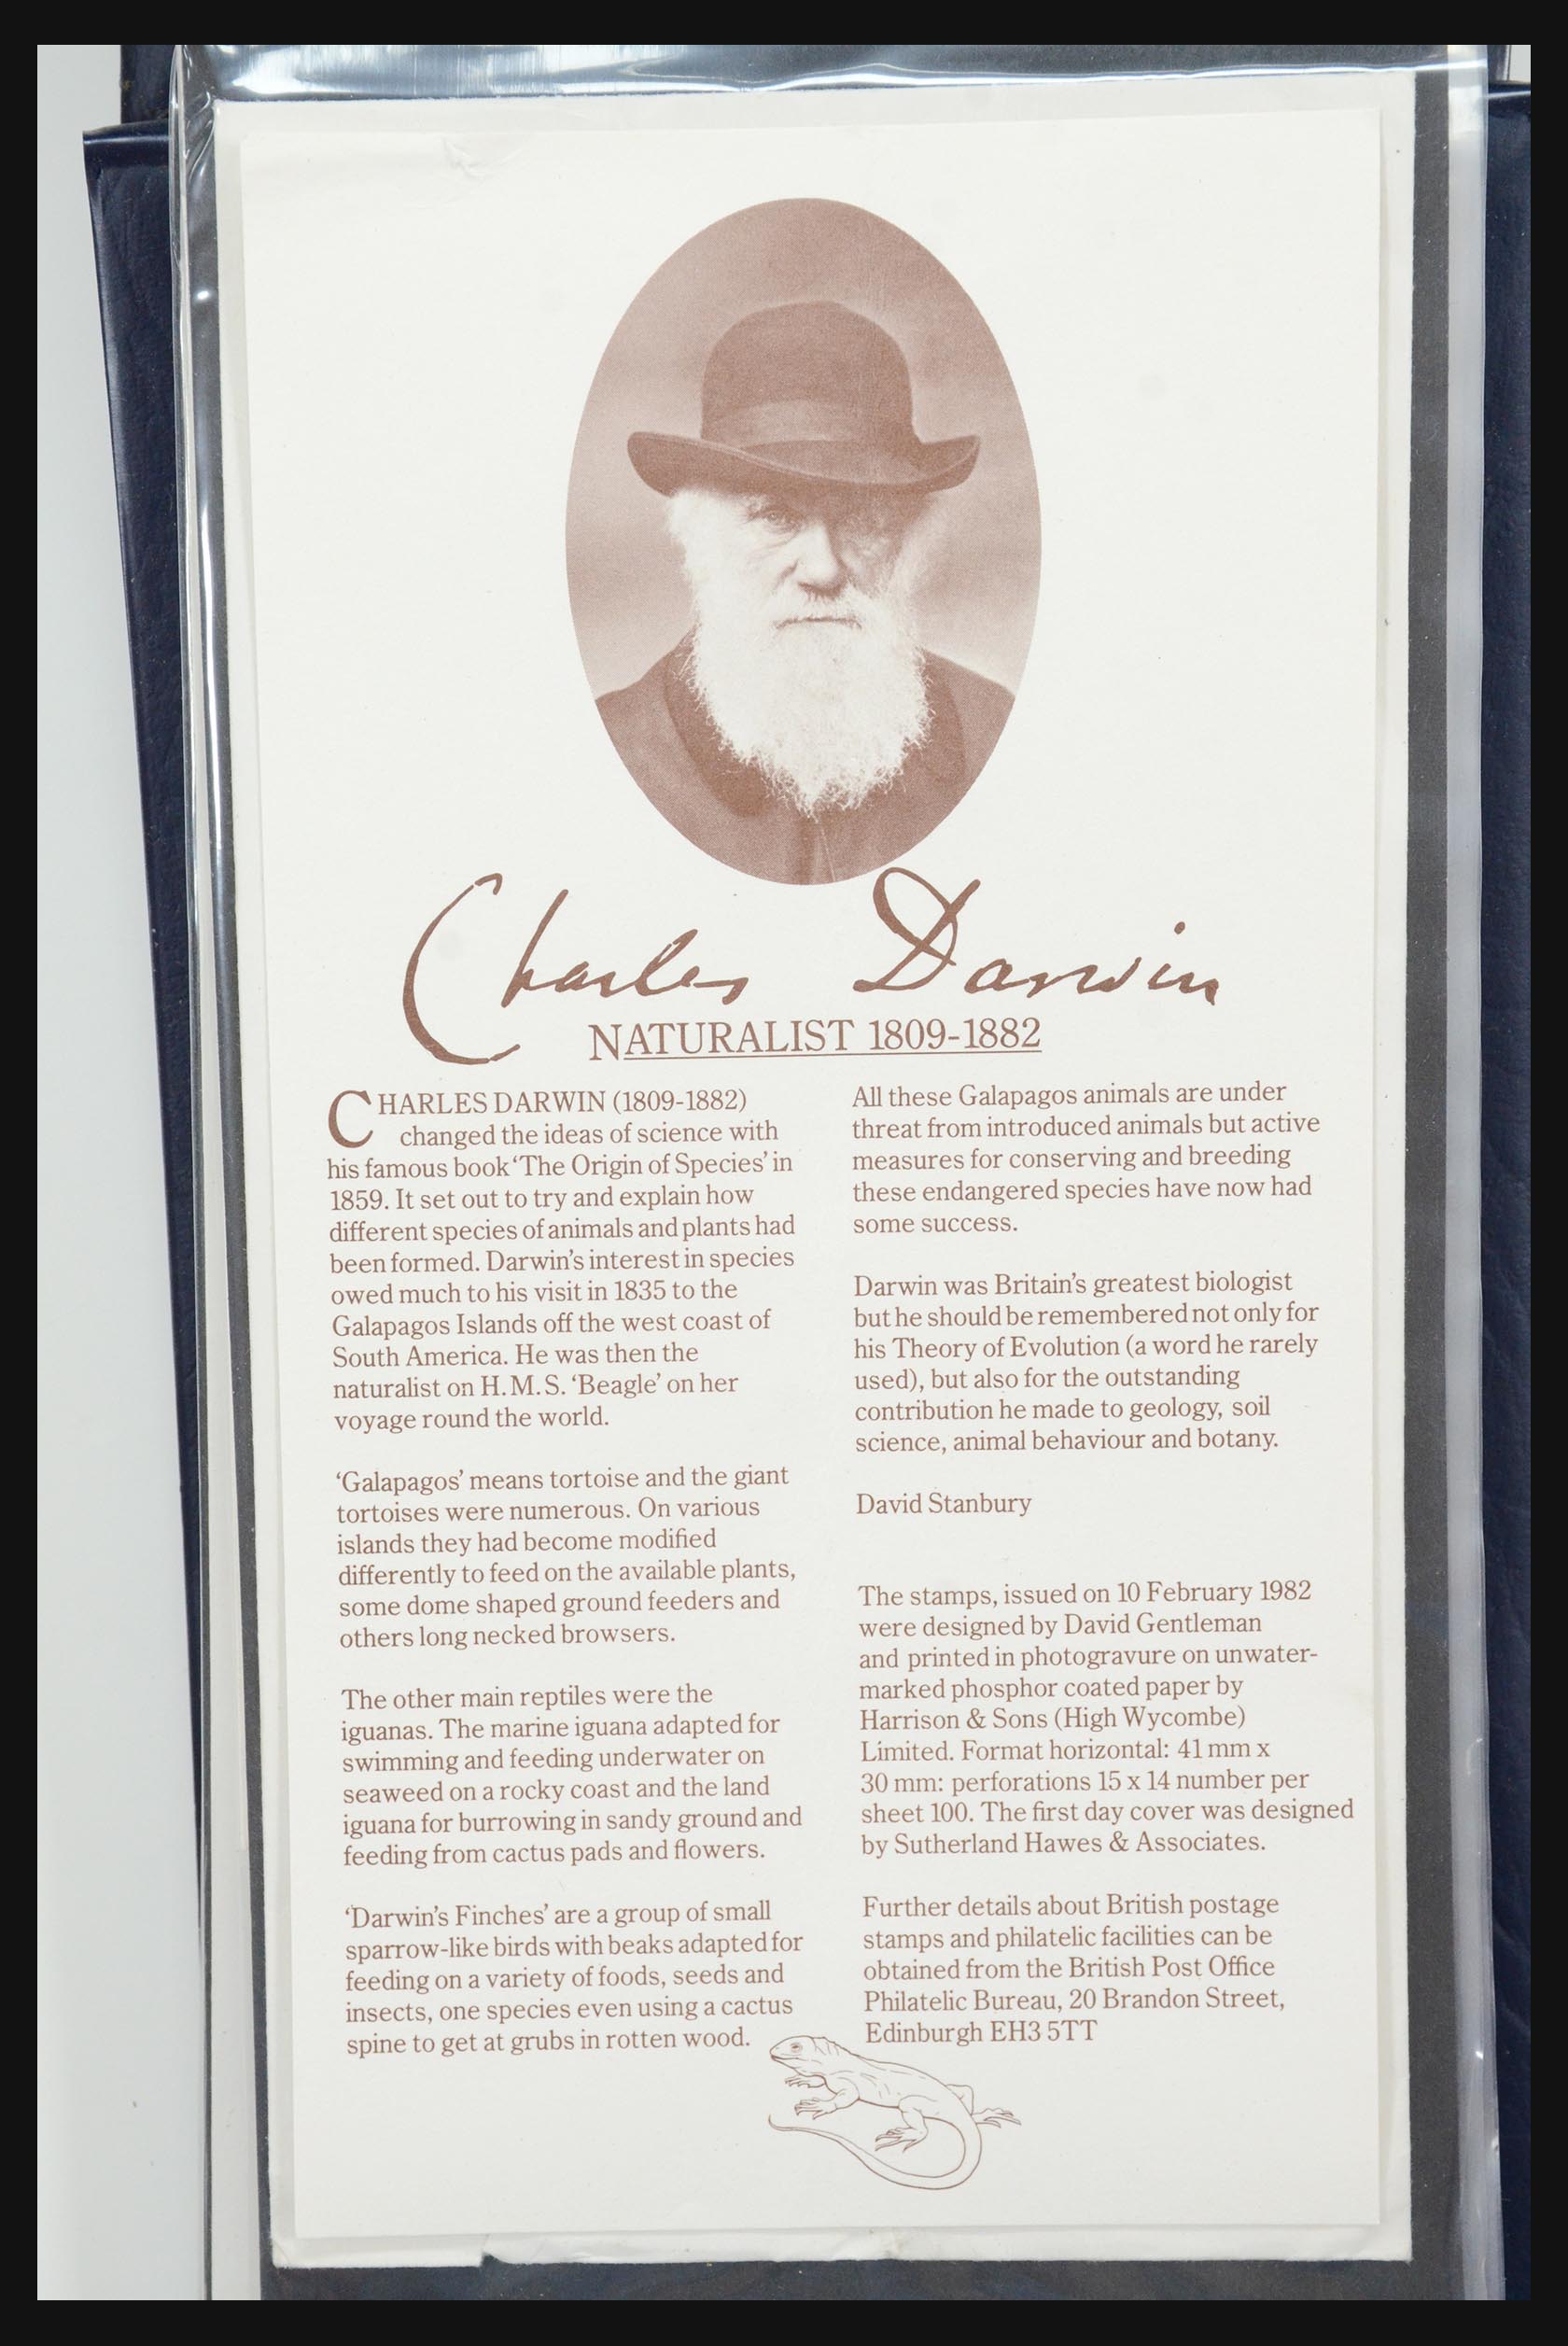 Charles Darwin
NATURALIST 1809-1882
CHARLES DARWIN (1809-1882)
changed the ideas of science with
his famous book ‘The Origin of Species’ in
1859. It set out to try and explain how
different species of animals and plants had
been formed. Darwin’s interest in species
owed much to his visit in 1835 to the
Galapagos Islands off the west coast of
South America. He was then the
naturalist on H.M.S. ‘Beagle’ on her
voyage round the world.
‘Galapagos’ means tortoise and the giant
tortoises were numerous. On various
islands they had become modified
differently to feed on the available plants,
some dome shaped ground feeders and
others long necked browsers.
The other main reptiles were the
iguanas. The marine iguana adapted for
swimming and feeding underwater on
seaweed on a rocky coast and the land
iguana for burrowing in sandy ground and
feeding from cactus pads and flowers.
‘Darwin’s Finches’ are a group of small
sparrow-like birds with beaks adapted for
feeding on a variety of foods, seeds and
insects, one species even using a cactus
spine to get at grubs in rotten wood.
All these Galapagos animals are under
threat from introduced animals but active
measures for conserving and breeding
these endangered species have now had
some success.
Darwin was Britain’s greatest biologist
but he should be remembered not only for
his Theory of Evolution (a word he rarely
used), but also for the outstanding
contribution he made to geology, soil
science, animal behaviour and botany.
David Stanbury
The stamps, issued on 10 February 1982
were designed by David Gentleman
and printed in photogravure on unwater-
marked phosphor coated paper by
Harrison & Sons (High Wycombe)
Limited. Format horizontal: 41 mm x
30 mm: perforations 15 x 14 number per
sheet 100. The first day cover was designed
by Sutherland Hawes & Associates.
Further details about British postage
stamps and philatelic facilities can be
obtained from the British Post Office
Philatelic Bureau, 20 Brandon Street,
Edinburgh EH3 5TT